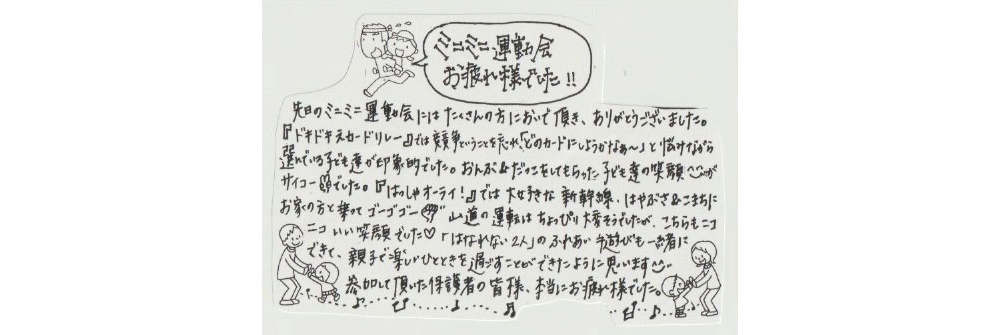 ミニミニ運動会
お疲れ様でした!!
先日のミニミニ運動会にはたくさんの方においで頂き、ありがとうございました。
『ドキドキ絵カードリレー』では競争ということを忘れ、「どのカードにしようかなぁ〜」と悩みながら
選んでいる子ども達が印象的でした。おんぶ&だっこをしてもらった子ども達の笑顔が
サイコーでした。『はっしゃオーライ!』では大好きな新幹線、はやぶさ&こまちに
お家の方と乗ってゴーゴゴー 山道の運転はちょっぴり大変そうでしたが、こちらもニコ
ニコいい笑顔でした♡「はなれない2人」のふれあい手遊びも一緒に
できて、親子で楽しいひとときを過ごすことができたように思います
参加して頂いた保護者の皆様、本当にお疲れ様でした。